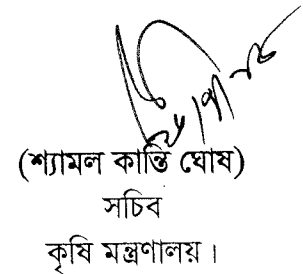 (শ্যামল কান্তি ঘোষ)
সচিব
কৃষি মন্ত্রণালয়।